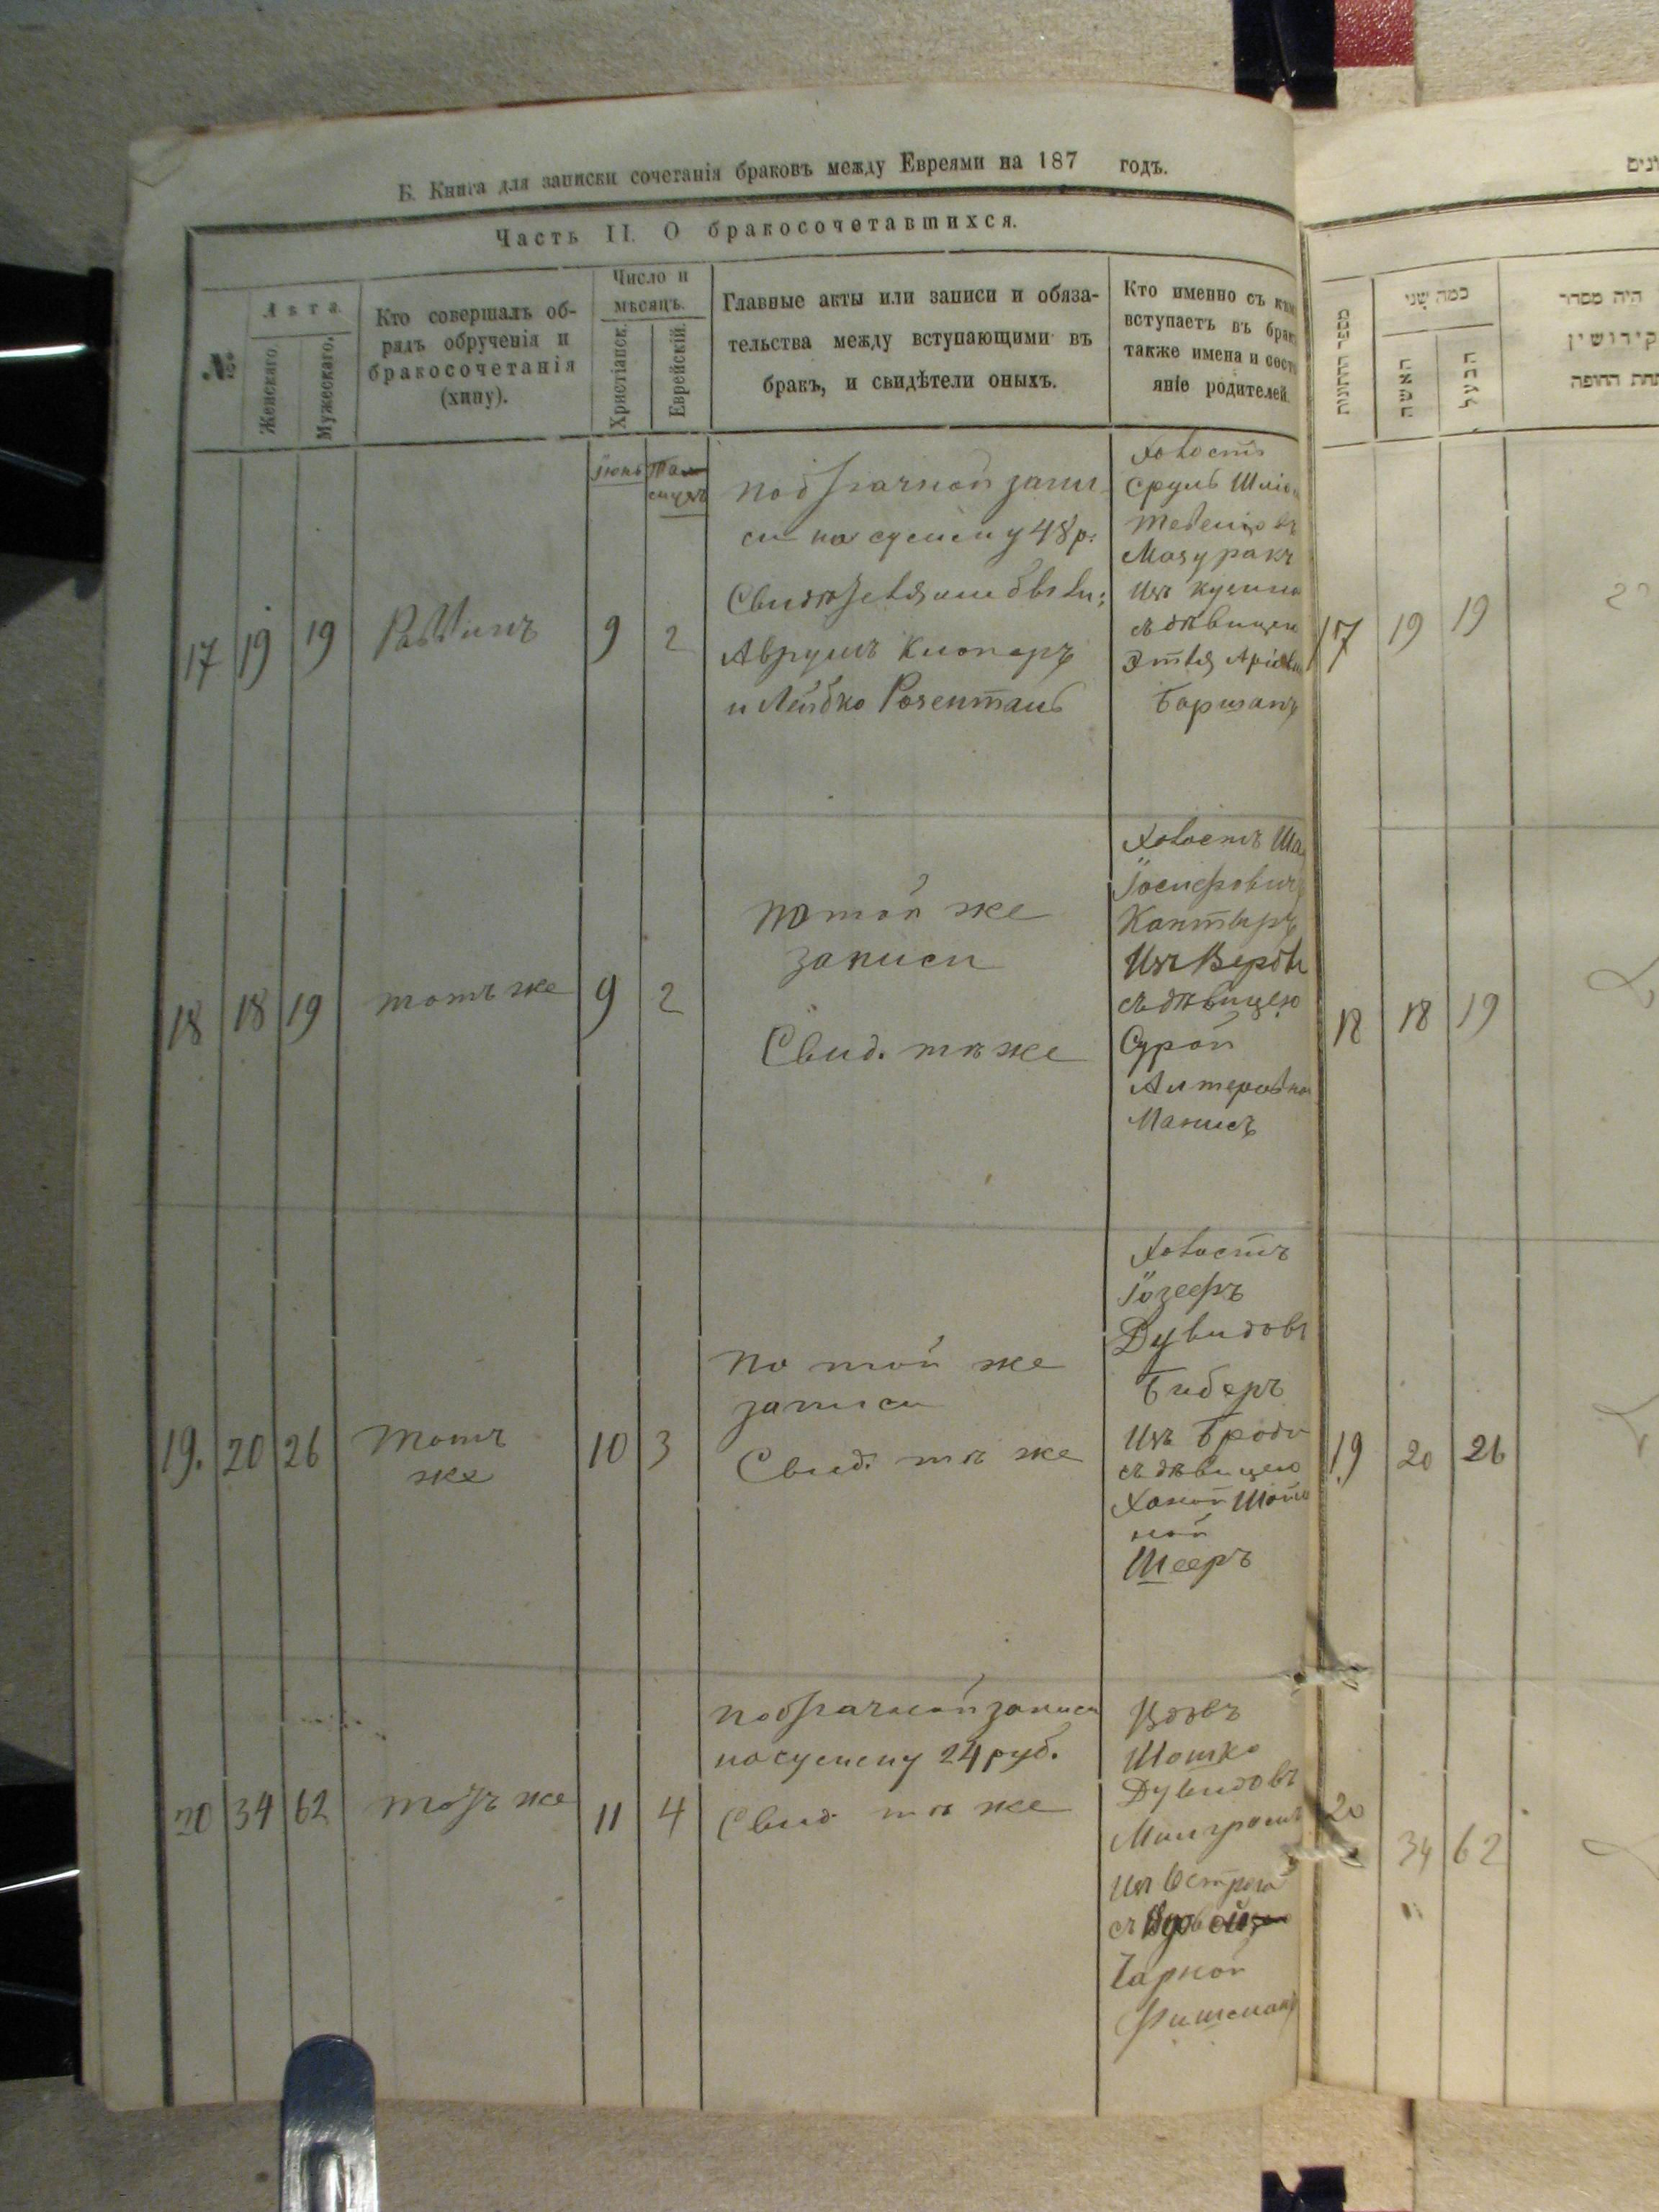 Б. Книга для записки сочетанія браковъ между Евреями на 187 годъ.
Часть II. О бракосочетавшихся.
№
Лѣта
Женскаго.
Мужескаго.
Кто совершалъ об-
рядъ обрученія и
бракосочетанія
(хипу).
Число и
мѣсяцъ.
Христіанск.
Еврейскій.
Главные акты или записи и обяза-
тельства между вступающими въ
бракъ, и свидѣтели оныхъ.
Кто именно съ кѣмъ
вступаетъ въ бракъ
также имена и состо
яніе родителей.
Іюнь
17 19 19 Раввинъ 9 2
по брачной запи-
си на сумму 48 р.
Свидѣтелями были:
Аврумъ
и Лейбко Розенталь
Холостъ
Сруль
Мазуракъ
изъ
съ дѣвицею
18 18 19 тотъ же 9 2
по той же
записи
Свид. тѣ же
Холостъ
Іосифовичъ
Кантыръ
Изъ
съ дѣвицею
Сурой
Алтеровна
Манисъ
19. 20 26 тотъ
же
10 3
по той же
записи
Свид. тѣ же
Холостъ
Іозефъ
Дувидовъ
Биберъ
Изъ
съ дѣвицею
Ханой
ной
Шееръ
20 34 62 тотъ же 11 4
по брачной записи
на сумму 24 руб.
Свид. тѣ же
Вдовъ
Шошко
Дувидовъ
изъ Острога
съ
Чарной
Фишманъ
מספר החתונות
כמה שני
האשה
הבעל
היה מסדר
קידושין
תחת החופה
17 19 19
18 18 19
19 20 26
20 34 62